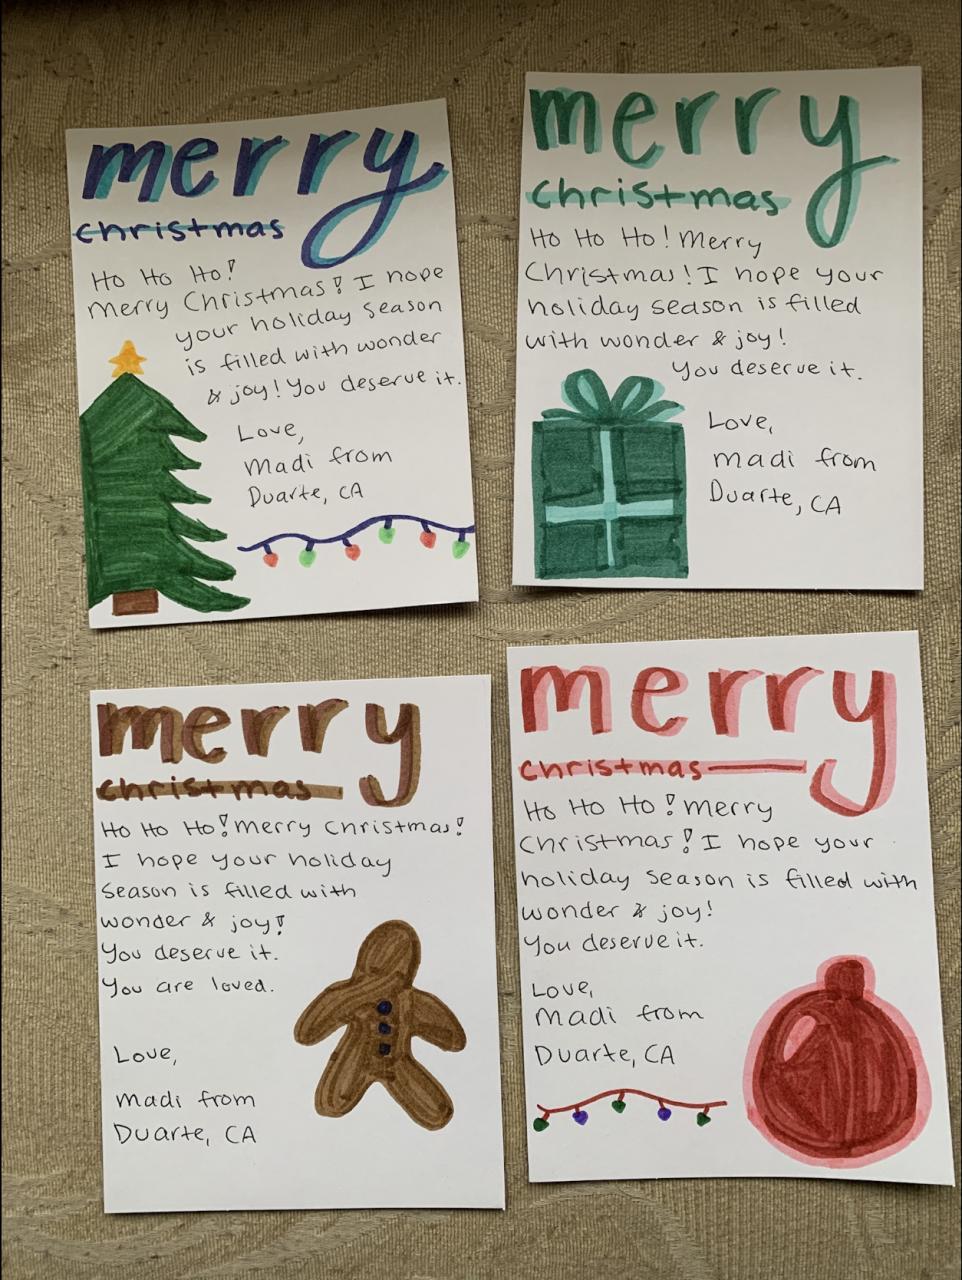 merry
christmas
Ho Ho Ho!
Merry Christmas! I hope
your holiday season
is filled with wonder
& joy! You deserve it.
Love,
Madi from
Duarte, CA
merry
christmas
Ho Ho Ho! Merry
Christmas! I hope your
holiday season is filled
with wonder & joy!
You deserve it.
Love,
Madi from
Duarte, CA
merry
christmas
Ho Ho Ho! Merry Christmas!
I hope your holiday
season is filled with
wonder & joy!
You deserve it.
You are loved.
Love,
Madi from
Duarte, CA
merry
christmas
Ho Ho Ho! Merry
Christmas! I hope your
holiday season is filled with
wonder & joy!
You deserve it.
Love,
Madi from
Duarte, CA